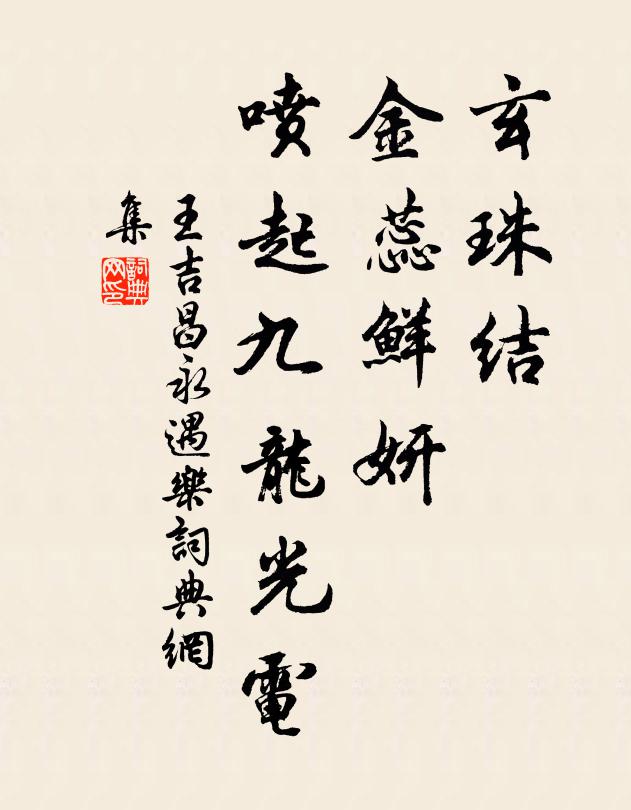 玄珠结
金蕊鮮妍
喷起九龍光電
王吉昌永遇樂詞典網
集
詞典
网印